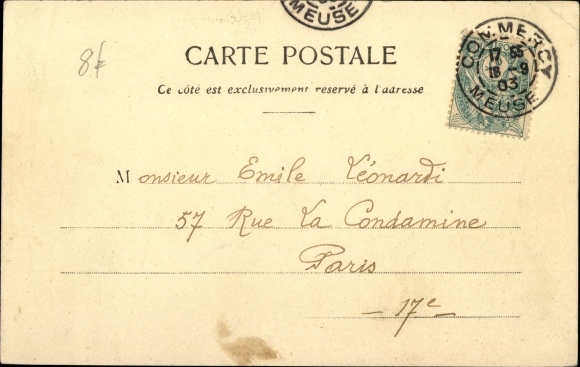 MEUSE
8f
CARTE POSTALE
Ce côté est exclusivement reservé à l'adresse
COMMERCY
17 35
18 - 9
03
MEUSE
Monsieur Emile Léonardi
57 Rue La Condamine
Paris
- 17e -